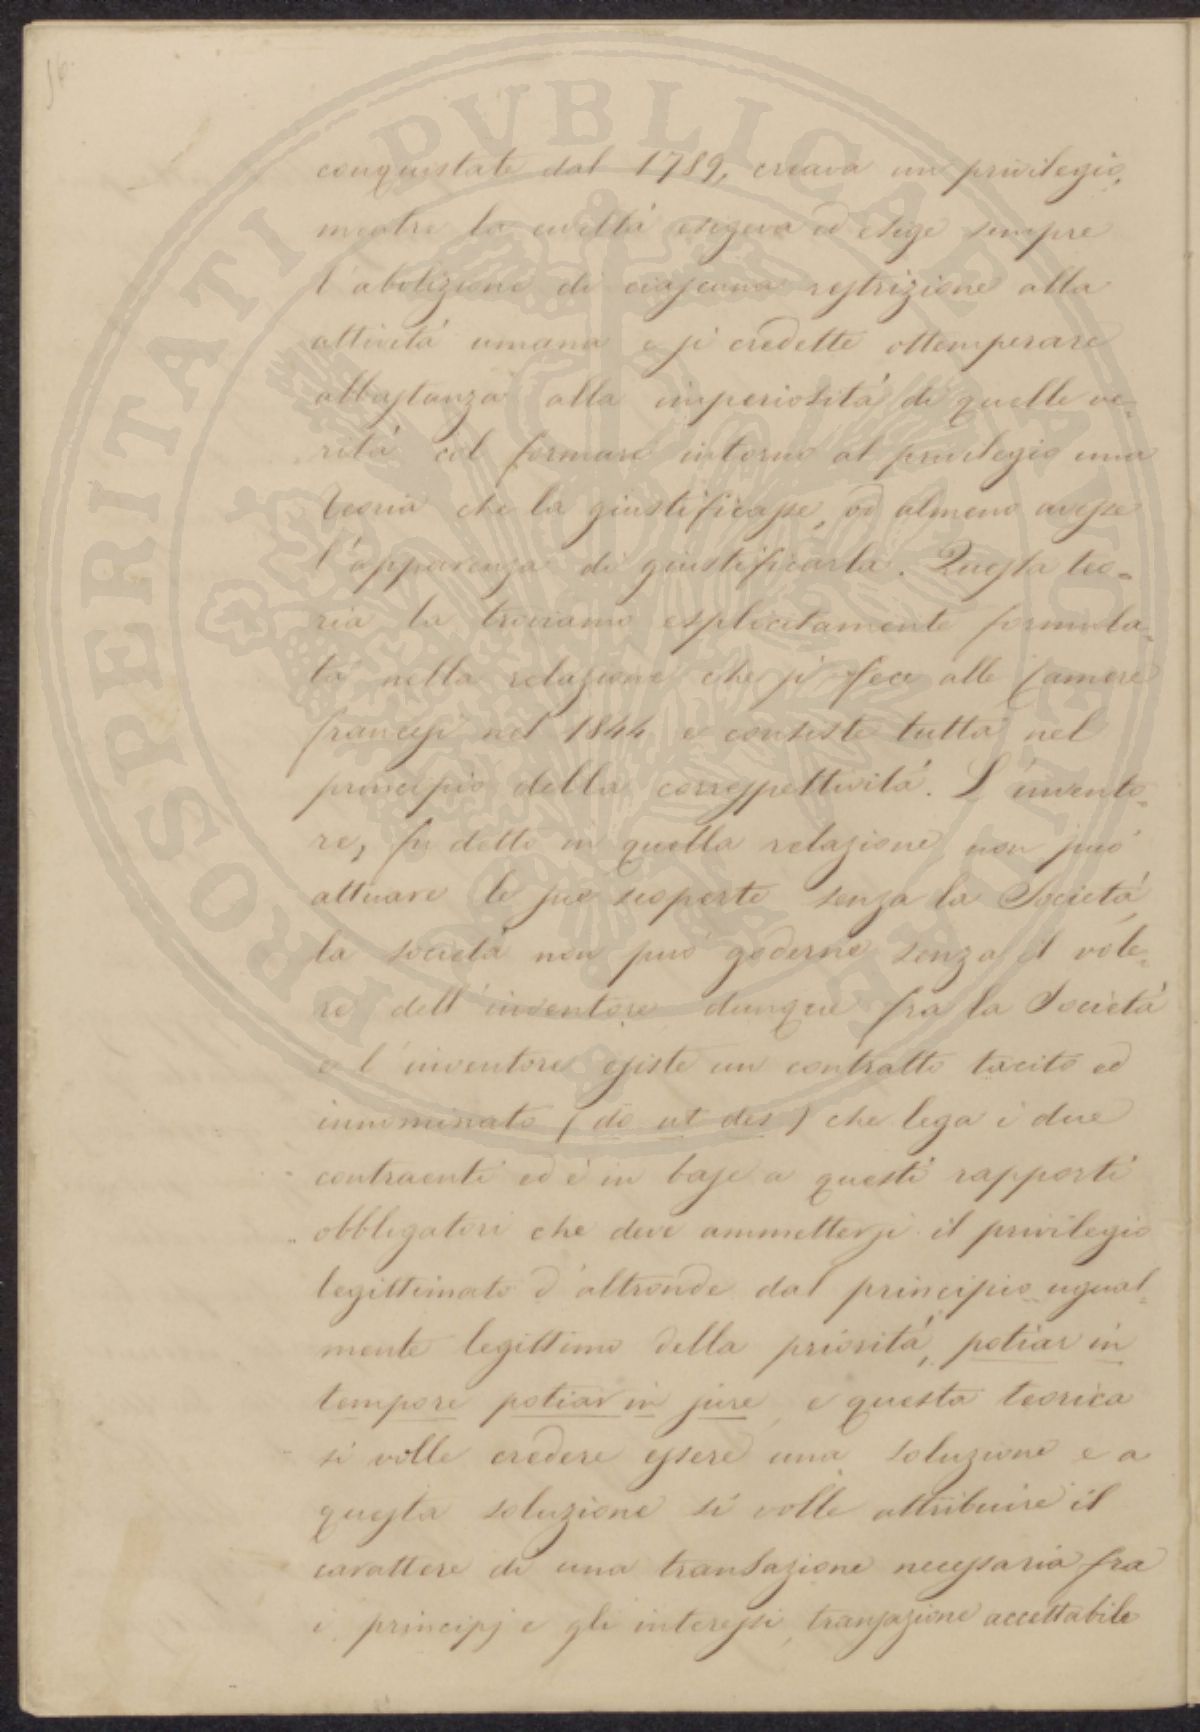 16.
conquistate dal 1789, creava un privilegio,
mentre la civiltà esigeva ed esige sempre
l'abolizione di ciascuna restrizione alla
attività umana e si credette ottemperare
abbastanza alla imperiosità di quelle ve-
rità col formare intorno al privilegio una
teoria che la giustificasse, od almeno avesse
l'apparenza di giustificarla. Questa teo-
ria la troviamo esplicitamente formula-
ta nella relazione che si fece alle Camere
francesi nel 1844 e consiste tutta nel
principio della correspettività. L'invento-
re, fu detto in quella relazione, non può
attuare le sue scoperte senza la Società,
la società non può goderne senza il vole-
re dell'inventore dunque fra la Società
e l'inventore esiste un contratto tacito ed
innominato (do ut des) che lega i due
contraenti ed è in base a questi rapporti
obbligatori che deve ammettersi il privilegio
legittimato d'altronde dal principio ugual-
mente legittimo della priorità, potiar in
tempore potiar in jure, e questa teorica
si volle credere essere una soluzione e a
questa soluzione si volle attribuire il
carattere di una transazione necessaria fra
i principj e gli interessi, transazione accettabile
PROSPERITATI PUBLICAE